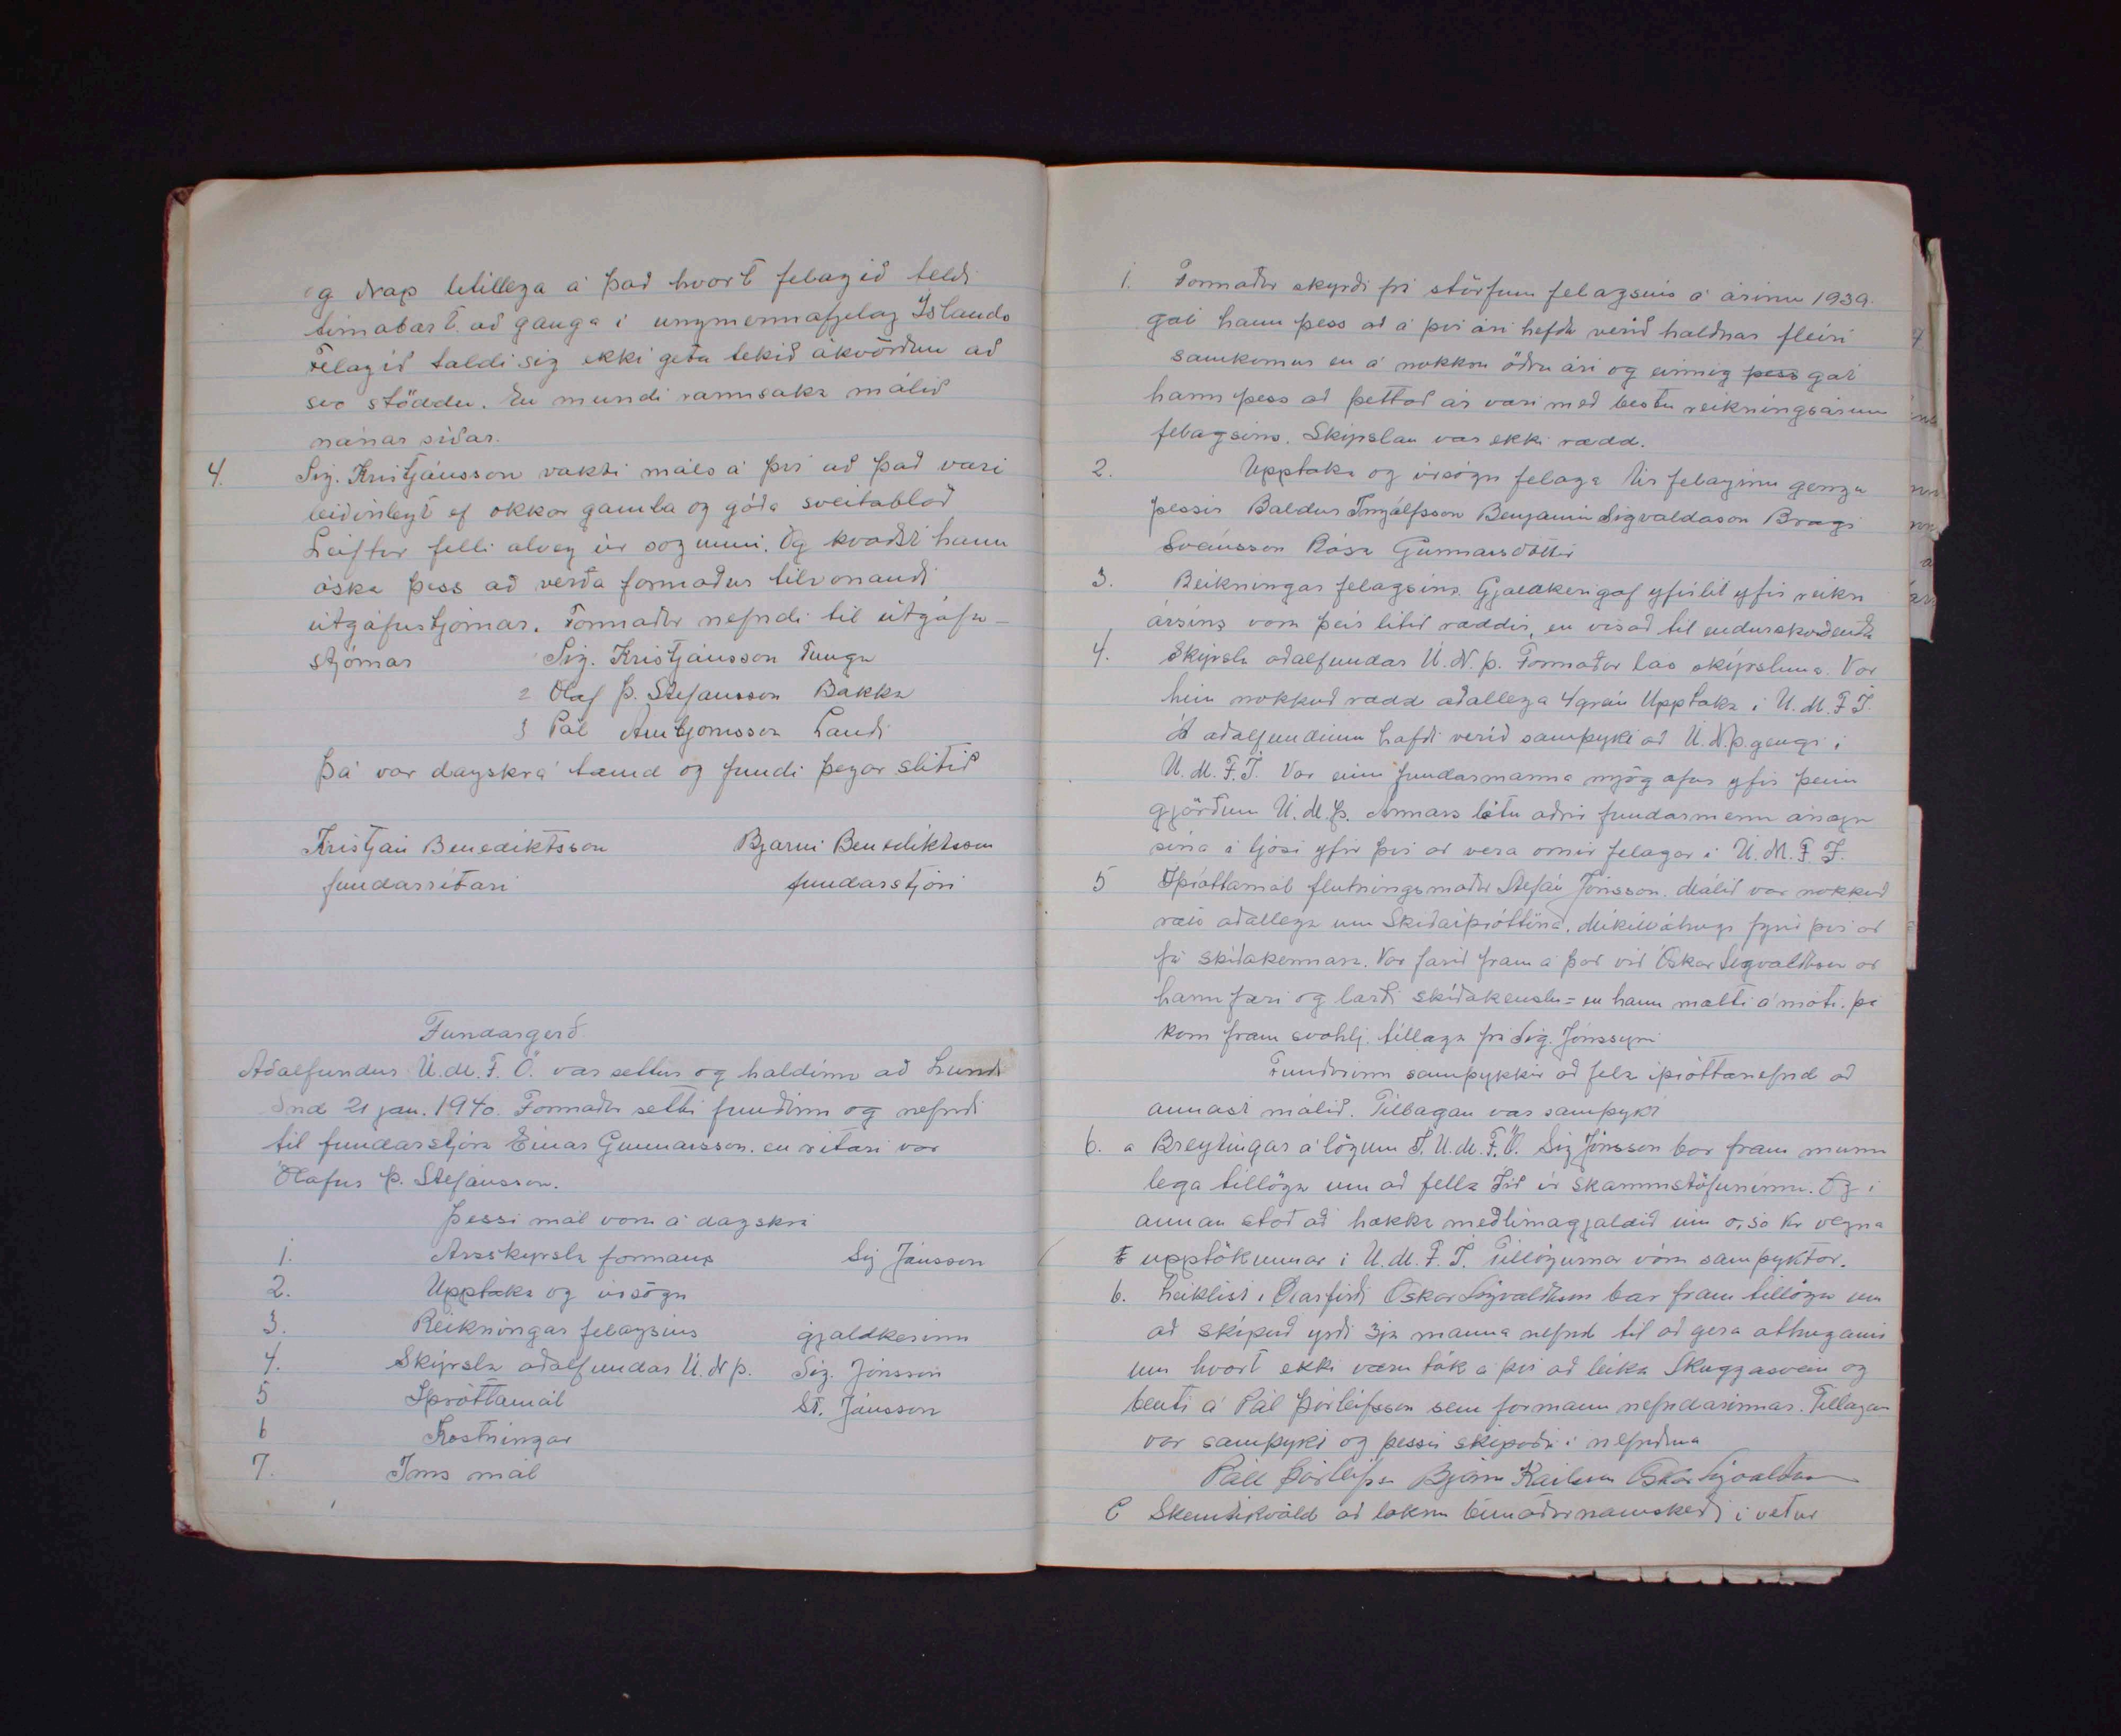 og drap lítillega á það hvort felagið teldi
timabært að ganga i ungmennafjelag Íslands
Felagið taldi sig ekki geta tekið ákvörðun að
svo stöddu. En mundi rannsaka málið
nánar síðar.
4. Sig. Kristjánsson vakti máls á því að það væri
leiðinlegt ef okkar gamla og góða sveitablað
Leiftur felli alveg úr sögunni. Og kvaðst hann
óska þess að verða formaður tilvonandi
útgáfustjórnar. Formaður nefndi til útgáfu-
stjórnar Sig. Kristjánsson Tungu
2 Ólaf Þ. Stefánsson Bakka
3 Pál Arnbjörnsson Lundi
Þá var dagskrá tæmd og fundi þegar slitið
Kristján Benediktsson Bjarni Benediktsson
fundarritari fundarstjóri
Fundargerð.
Aðalfundur U.M.F.Ö. var settur og haldinn að Lundi
2nd 21 jan. 1940. Formaður setti fundinn og nefndi
til fundarstjóra Einar Gunnarsson. en ritari var
Ólafur Þ. Stefánsson.
Þessi mál voru á dagskrá
1. Arsskyrsla formans Sig Jónsson
2. Upptaka og úrsögn
3. Reikningar felagsins gjaldkerinn
4. Skýrsla aðalfundar U.N.Þ. Sig. Jónsson
5 Íþróttamál St. Jónsson
6 Kostningar
7. Ims mál
1. Formaður skyrði frá störfum felagsins á árinu 1939.
gat hann þess að á því ári hefðu verið haldnar fleiri
samkomur en á nokkru öðru ári og einnig þess gat
hann þess að þettað ár væri með bestu reikningsárum
felagsins. Skýrslan var ekki rædd.
2. Upptaka og úrsögn felaga Úr felaginu gengu
þessir Baldur Ingólfsson Benjamin Sigvaldason Bragi
Sveinsson Rósa Gunnarsdóttir
3. Reikningar felagsins. Gjaldkeri gaf yfirlit yfir reikn
ársins voru þeir lítið ræddir, en vísað til endurskoðenda
4. Skýrsla aðalfundar U.N.Þ. Formaður las skýrsluna. Var
hún nokkuð rædd aðallega 4 grein Upptaka i U.M.F.Í.
Á aðalfundinum hafði verið samþykt að U.N.Þ. gengi i
U.M.F.Í. Var einn fundarmanna mjög afur yfir þeim
gjörðum U.M.Þ. Annars létu aðrir fundarmenn ánægu
sína i ljósi yfir því að vera orðnir felagar i U.M.F.Í.
5 Íþróttamál flutningsmaður Stefán Jónsson. Málið var nokkuð
rætt aðallega um Skíðaíþróttina. Mikill áhugi fyrir því að
fá skíðakennara. Var farið fram á það við Óskar Sigvaldason að
hann færi og lærði skíðakenslu = en hann mælti á móti. þá
kom fram svohlj. tillaga frá Sig. Jónssyni
Fundurinn samþykkir að fela íþróttanefnd að
annast málið. Tillagan var samþykt
6. a Breytingar á lögum Í.U.M.F.Ö. Sig Jónsson bar fram munn
lega tillögu um að fella Íið úr skammstöfuninni. Og i
annan stað að hækka meðlimagjaldið um 0,50 kr vegna
upptökunnar i U.M.F.Í. Tillögurnar vóru samþyktar.
b. Leiklist i Öxarfirði Óskar Sigvaldason bar fram tillögu um
að skipuð yrði 3ja manna nefnd til að gera athuganir
um hvort ekki væru tök á því að leika Skuggasvein og
benti á Pál Þorleifsson sem formann nefndarinnar. Tillagan
var samþykt og þessir skipaðir i nefndina
Páll Þorleifsson Björn Karlsson Óskar Sigvaldason
C Skemtikvöld að loknu námskeiði i vetur